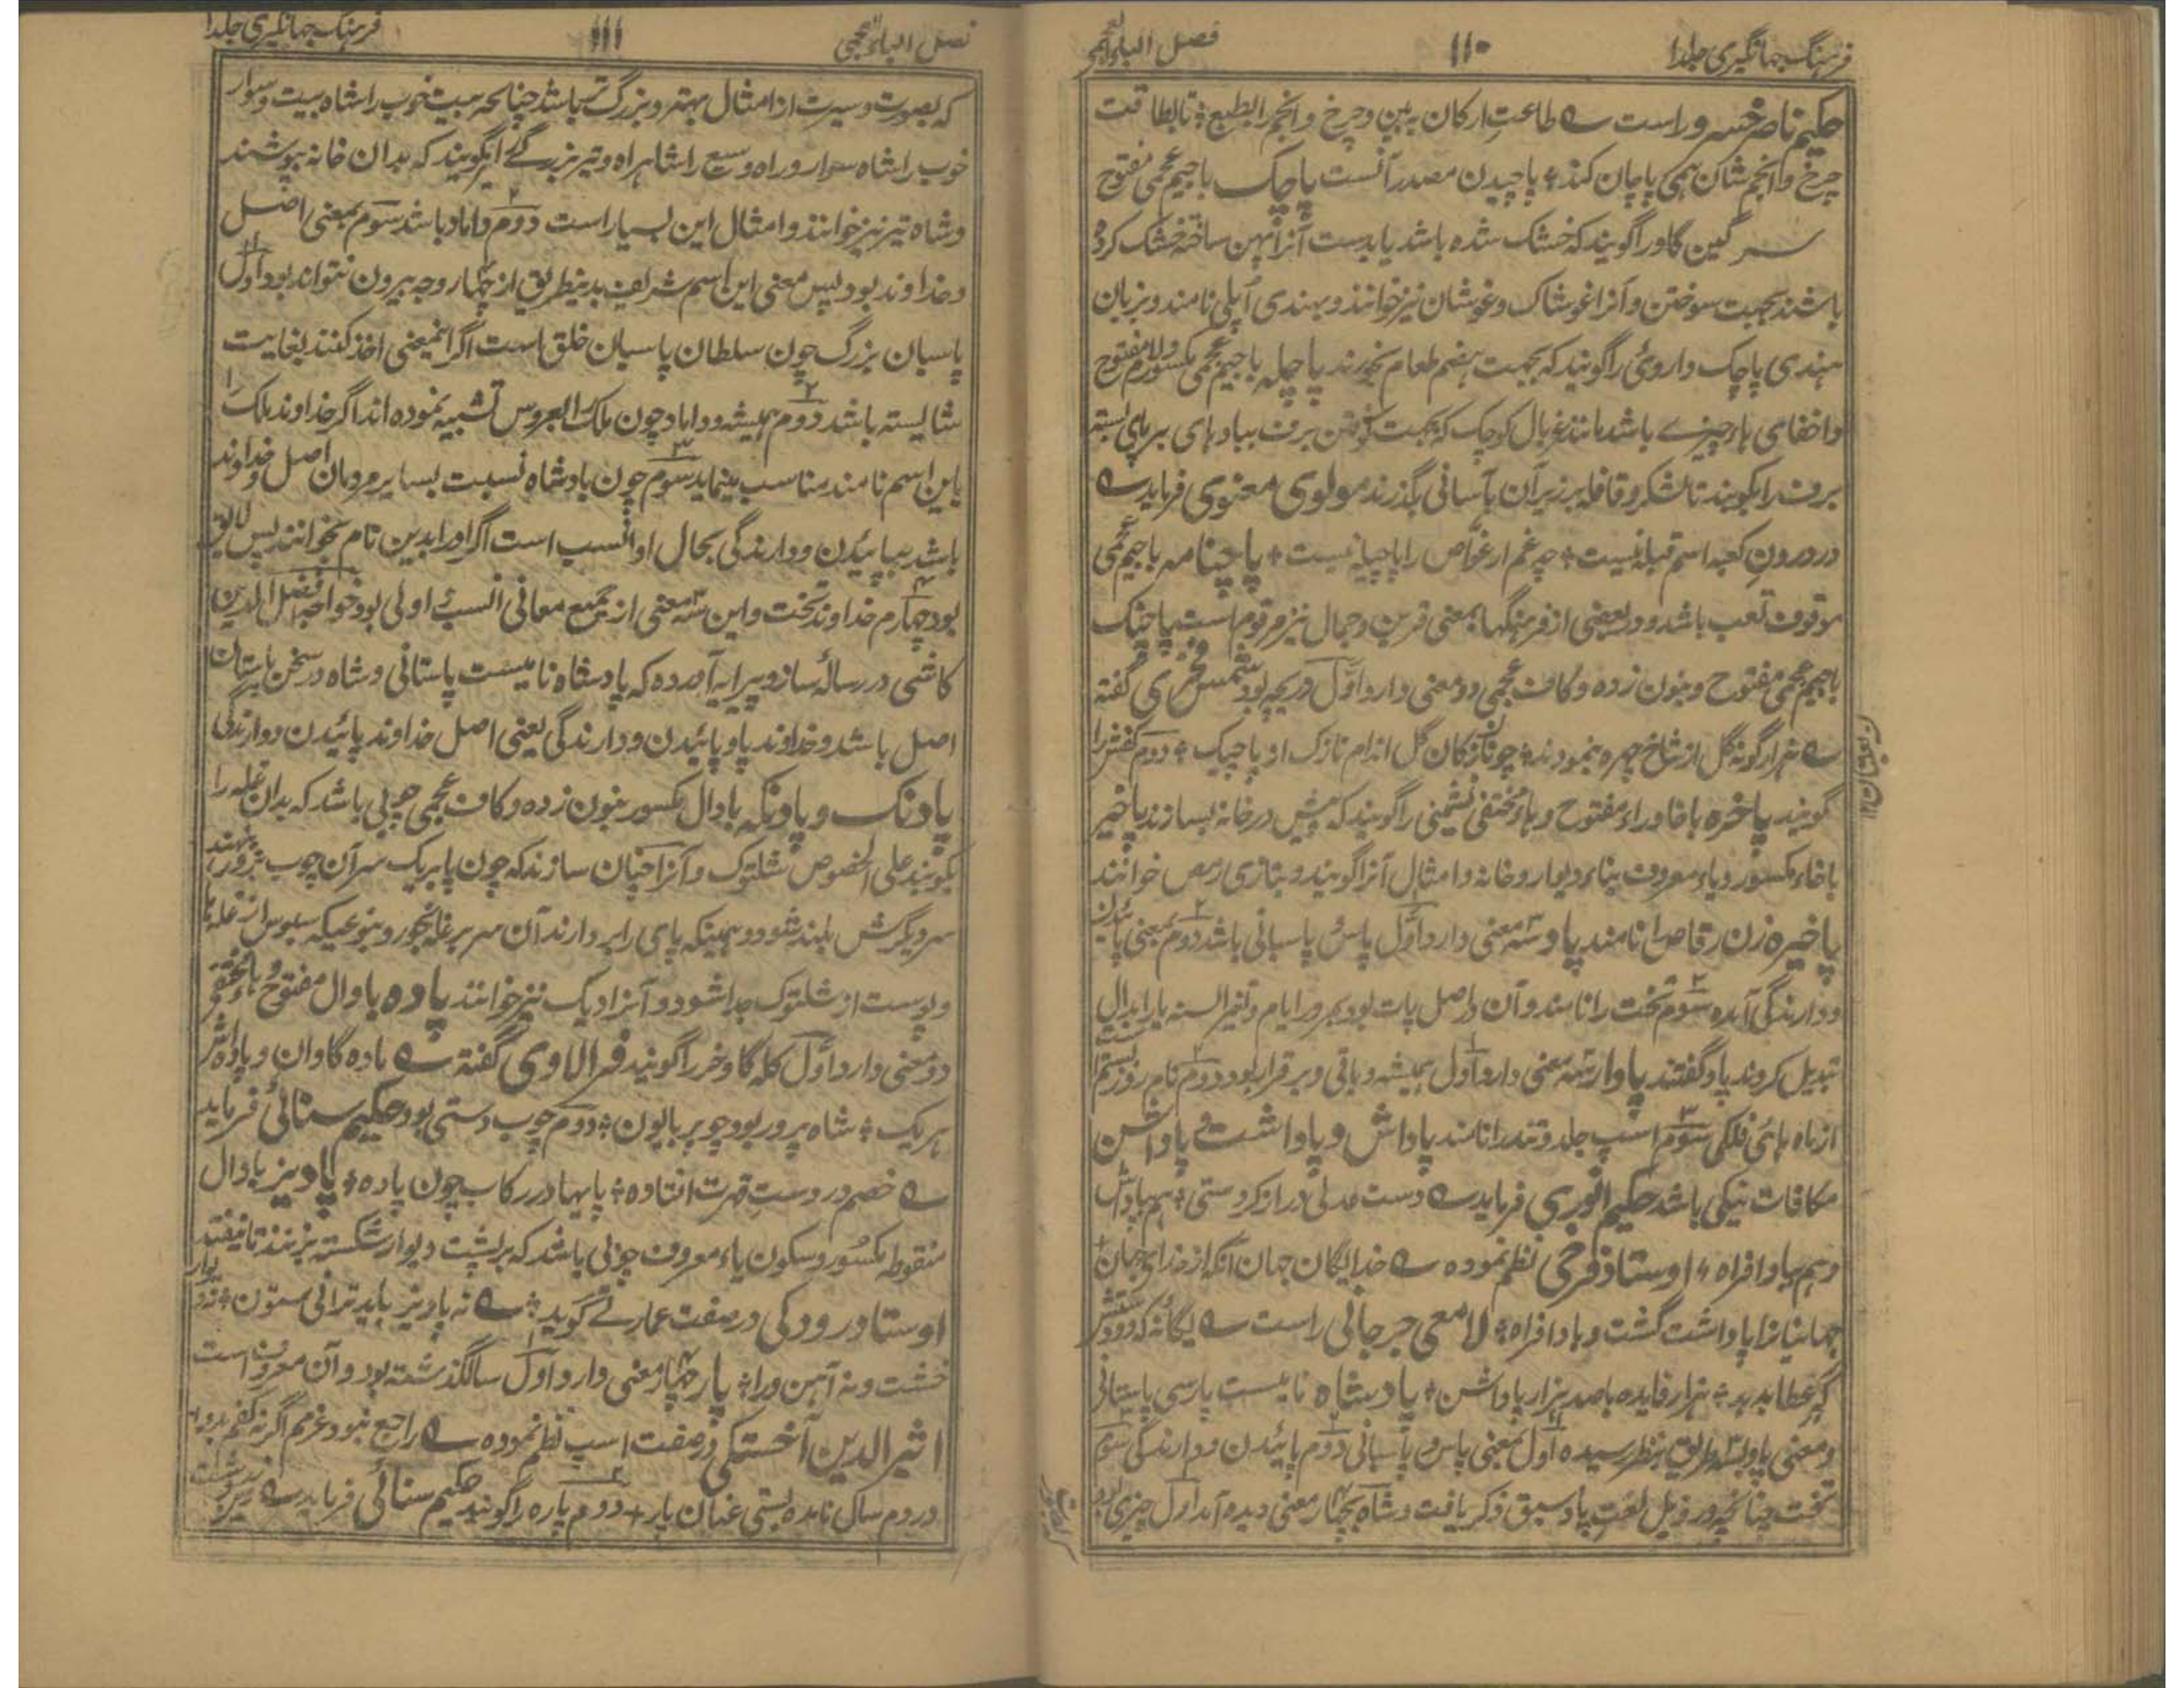 فرہنگ جہانگیری جلد ا
۱۱۰
فصل الباء العجمی
حکیم ناصر خسرو راست ے طاعت ارکان ببین و چرخ و انجم را بطبع ÷ تا بطاقت
چرخ و انجم شان ہمی پاچان کند ÷ پاچیدن مصدر آنست پاچک باجیم عجمی مفتوح
سرگین گاو را گویند کہ خشک شدہ باشد یا بدست آنرا پہن ساختہ خشک کردہ
باشند بجہت سوختن و آنرا غوشاک و غوشان نیز خوانند و بہندی اپلی نامند و بزبان
ہندی پاچک داروئی را گویند کہ بجہت ہضم طعام بخورند پاچلہ باجیم عجمی مکسور و لام مفتوح
و اخفای ہا چیزے باشد مانند غربال کوچک کہ بجہت کوفتن برف پیادہای بر پای بستہ
برف را بکوبند تا لشکر و قافلہ بر زبر آن بآسانی بگذرند مولوی معنوی فرماید ے
در درون کعبہ اسم قبلہ نیست ÷ چہ غم ار غواص را پاچیلہ نیست ÷ پاچنامہ باجیم عجمی
موقوف لقب باشد و در بعضی از فرہنگہا بمعنی قرین و ہمال نیز مرقوم است پاچنگ
باجیم عجمی مفتوح و بنون زدہ و کاف عجمی دو معنی دارد اول دریچہ بود شمس فخری گفتہ
ے ہزار گونہ گل از شاخ چہرہ بنمودند ÷ چو نازکان گل اندام نازک او پاچنگ ÷ دوم کفش را
گویند پاخرہ باخا و راء مفتوح و ہاء مختفی نشیمنی را گویند کہ پیش در خانہ بسازند پاخیر
باخاء مکسور و یاء معروف بناء دیوار و خانہ و امثال آنرا گویند و بتازی رہص خوانند
پاخیرہ زن رقاصہ را نامند پاد سہ معنی دارد اول پاس و پاسبانی باشد دوم بمعنی پائیدن
و دارندگی آمدہ سوم تخت را نامند و آن در اصل پات بود بمرور ایام و تغیر السنہ تا را بدال
تبدیل کردند پاد گفتند پادار سہ معنی دارد اول ہمیشہ و باقی و برقرار بود دوم نام روز بستم
از ماہ ہای فلکی سوم اسپ جلد و تند را نامند پاداش و پاداشت و پاداشن
مکافات نیکی باشد حکیم انوری فرماید ے دست عدلی دراز کردستی ÷ ہم بپاداش
و ہم بپادافراہ ÷ اوستاد فرخی نظم نمودہ ے خدایگان جہان آنکہ از خدای جہان
جہانیانرا پاداشت گشت و بادافراہ ÷ لامعی جرجانی راست ے یگانۂ کہ دو
گر عطا بدہد ÷ ہزار فایدہ باصد ہزار پاداشن ÷ پادشاہ نامیست پارسی باستانی
و معنی پاد بسہ طریق بنظر رسیدہ اول بمعنی پاس و پاسبانی دوم پائیدن و دارندگی سوم
تخت چنانچہ در ذیل لغت پاد سبق ذکر یافت و شاہ بچہار معنی دیدہ آمد اول چیزی بود
فرہنگ جہانگیری جلد ا
۱۱۱
فصل الباء العجمی
کہ بصورت و سیرت از امثال بہتر و بزرگ تر باشد چنانچہ بیت خوب را شاہ بیت و سوار
خوب را شاہ سوار و راہ وسیع را شاہراہ و تیر بزرگے را گویند کہ بدان خانہ بپوشند
و شاہ تیر نیز خوانند و امثال این بسیار است دوم داماد باشد سوم بمعنی اصل
و خداوند بود پس معنی این اسم شریف بدینطریق از چہار وجہ بیرون نتواند بود اول
پاسبان بزرگ چون سلطان پاسبان خلق است اگر اینمعنی اخذ کنند بغایت
شایستہ باشد دوم ہمیشہ داماد چون ملک را بعروس تشبیہ نمودہ اند اگر خداوند ملک را
باین اسم نامند مناسب مینماید سوم چون پادشاہ نسبت بسایر مردمان اصل و خداوند
باشد بپائیدن و دارندگی بحال او انسب است اگر او را بدین نام بخوانند پس لایق
بود چہارم خداوند تخت و این سہ معنی از جمیع معانی انسب و اولی بود خواجہ افضل الدین
کاشی در رسالۂ ساز و پیرایہ آوردہ کہ پادشاہ نامیست باستانی و شاہ در سخن باستان
اصل باشد و خداوند پاد پائیدن و دارندگی یعنی اصل خداوند پائیدن و دارندگی
پادنگ و پادنگہ بادال مکسور بنون زدہ و کاف عجمی چوبی باشد کہ بدان غلہ را
بکوبند علی الخصوص شلتوک و آنرا چنان سازند کہ چون پا بر یک سر آن چوب بزور نہند
سر دیگرش بلند شود و ہمینکہ پای را بردارند آن سر بر غلہ بخورد و بنوعیکہ سبوس از غلہ یا
و پوست از شلتوک جدا شود و آنرا دیک نیز خوانند پادہ بادال مفتوح و ہاء مختفی
دو معنی دارد اول گلہ گاو و خر را گویند فرالاوی گفتہ ے مادہ گاوان و پادہ اش
ہریک ÷ شاہ پرور بود چو برمایون ÷ دوم چوب دستی بود حکیم سنائی فرماید
ے خصم در دست قہرت افتادہ ÷ پایہا در رکاب چون پادہ ÷ پادیز بادال
منقوطہ مکسور و سکون یاء معروف چوبی باشد کہ بر پشت دیوار شکستہ بزنند تا نیفتد
اوستاد رودکی در صفت عمارتے گوید ÷ ے نہ پادیز باید ترا نی ستون ÷ نہ دیوار
خشت و نہ آہن ورا ÷ پار چہار معنی دارد اول سال گذشتہ بود و آن معروف است
اثیر الدین اخستکی در صفت اسپ نظم نمودہ ے راجع نبود عزمم اگر نہ
در دوم سال ماندہ بستی عنان پار ÷ دوم پارہ را گویند حکیم سنائی فرماید ے